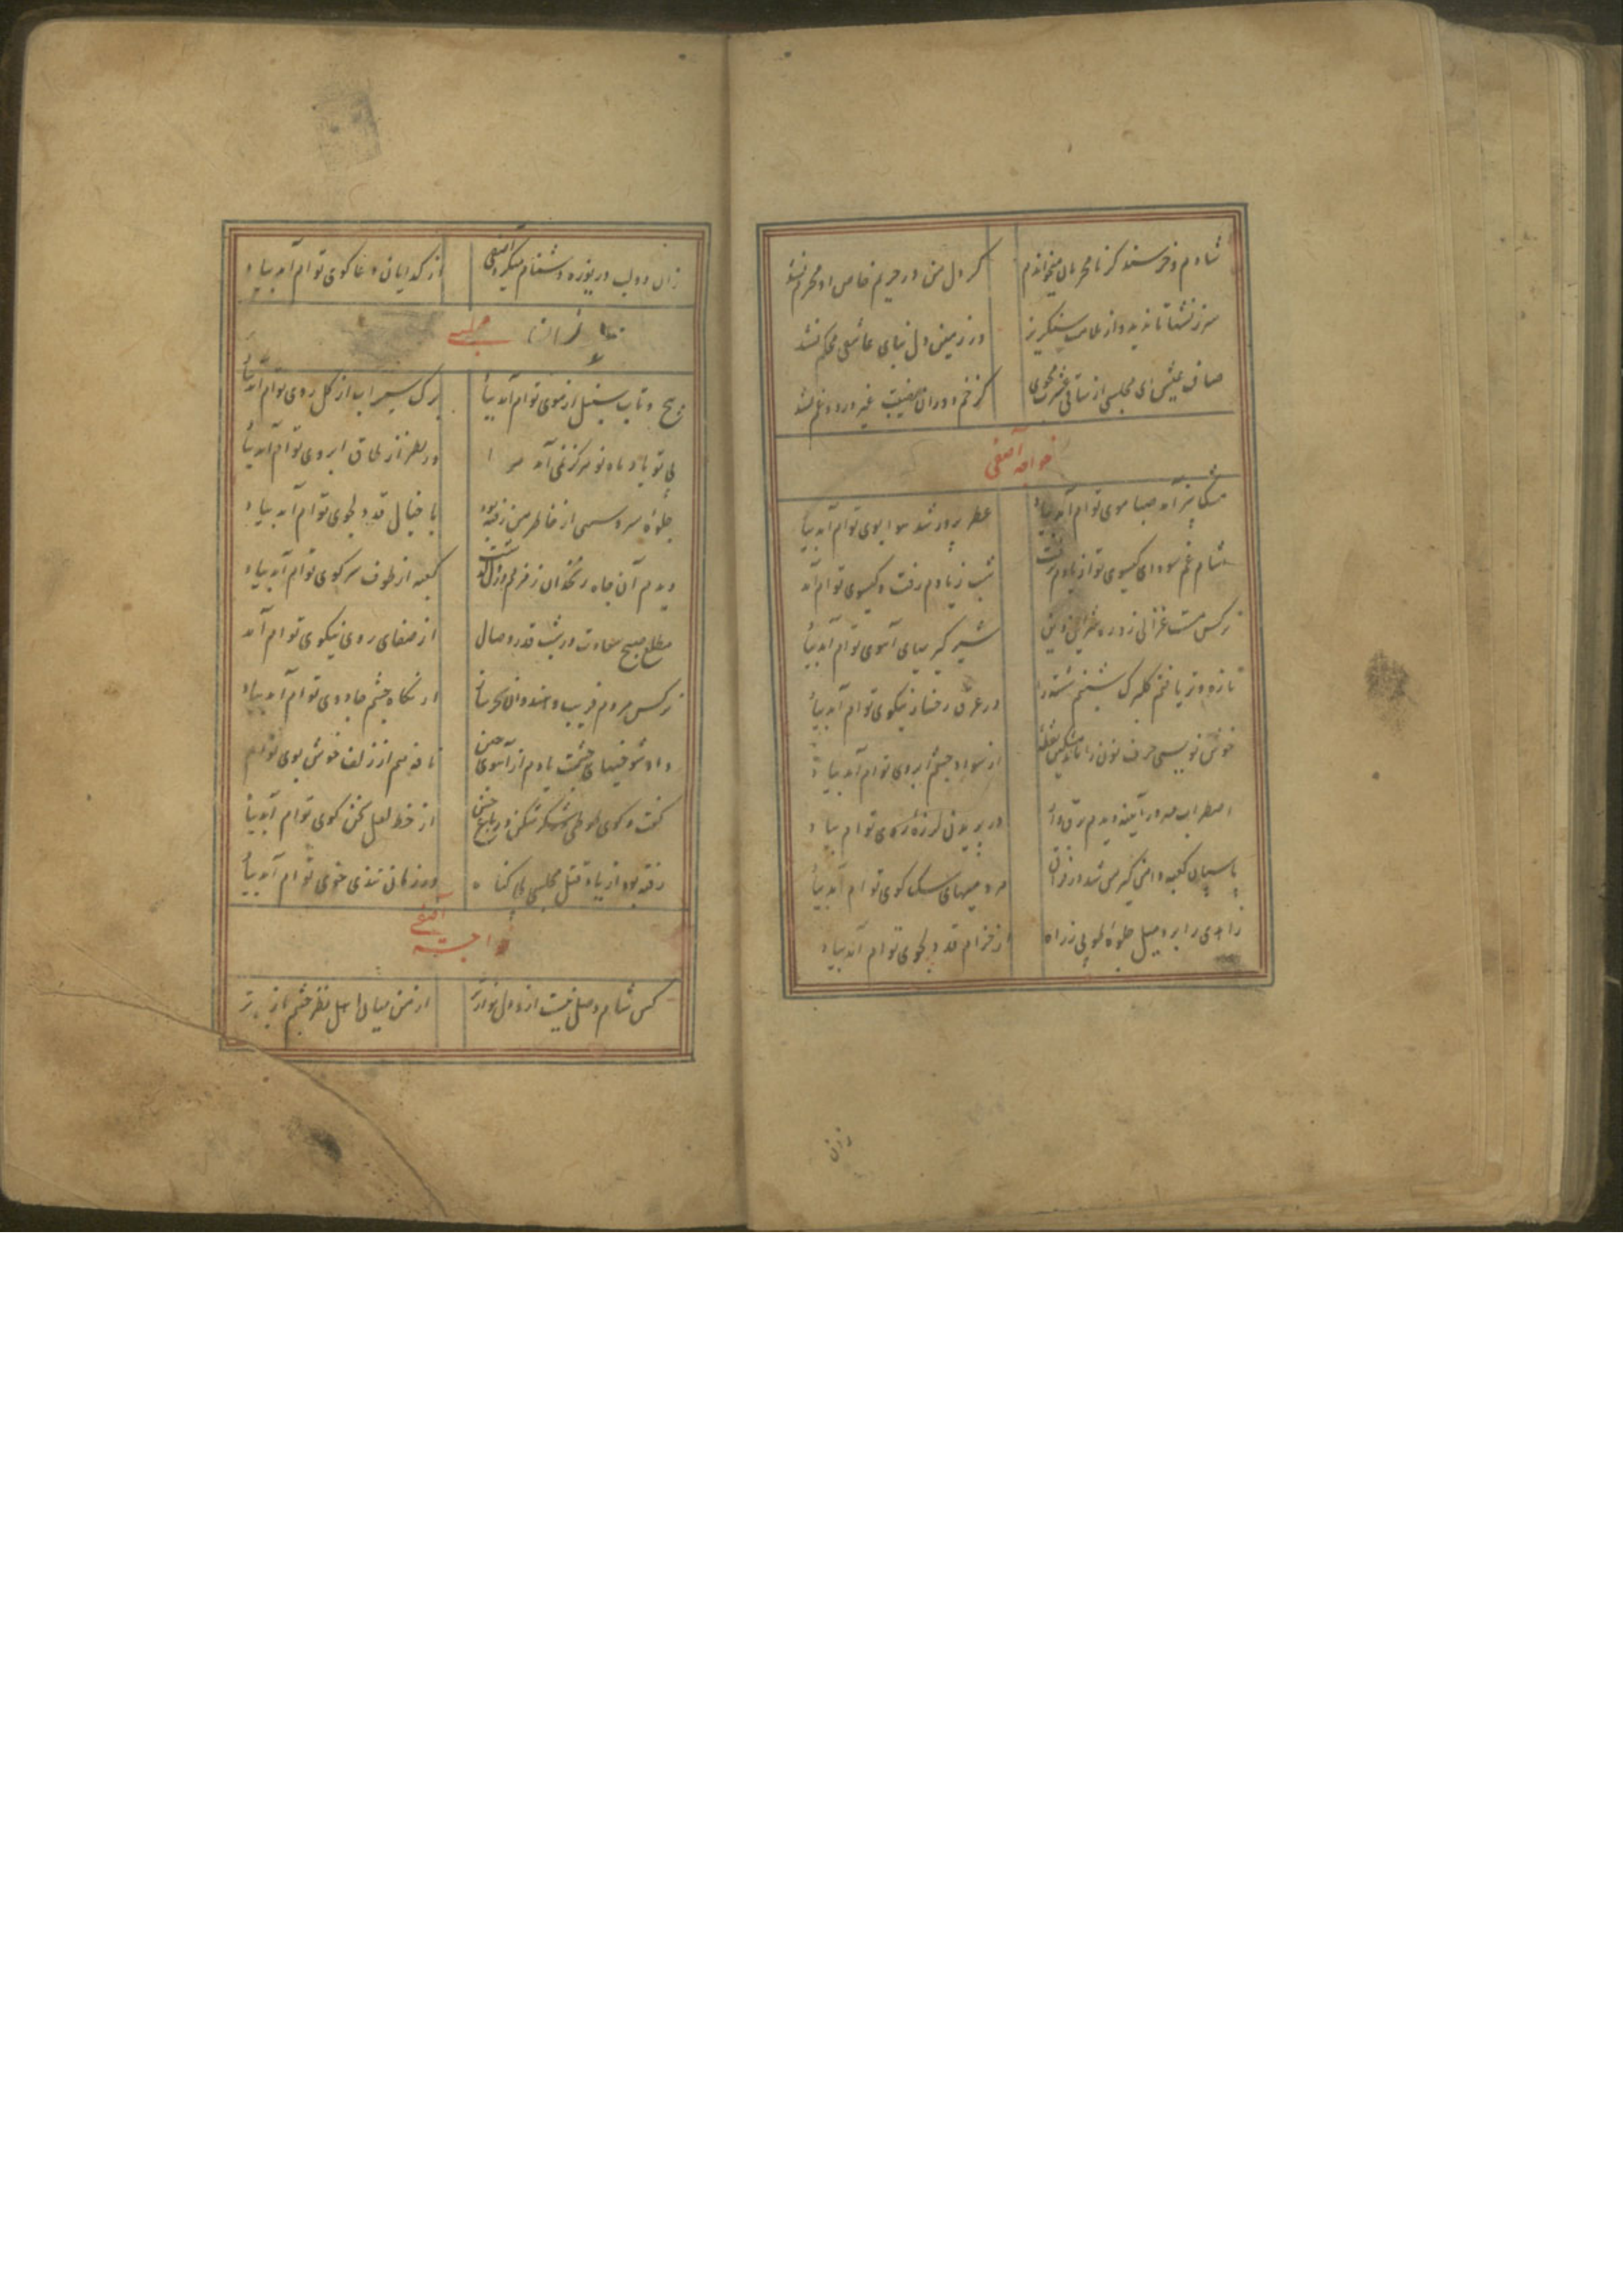 شادم و خرسند کز نامحرمان میخواندم کر دل من در حریم خاص او محرم نشد
سرزنشها تا ندید و از ملامت سنکریز در زمین دل بنای عاشقی محکم نشد
صاف عیش ای مجلسی از ساقی عشرت مجوی کز خم دوران نصیبت غیر درد و غم نشد
خواجه آصفی
مشکبیز آمد صبا موی توام آمد بیاد عطرپرور شد هوا بوی توام آمد بیاد
شام غم سودای کیسوی تو از یادم نرفت شب زیادم رفت و کیسوی توام آمد
نرکس مست غزالی زد ره دین شیرکیریهای آهوی توام آمد بیاد
تازه و تر یافتم کلبرک شبنم شسته را در عرق رخسار نیکوی توام آمد بیاد
خوش نویسی حرف نون را مشکین نقطه از سواد چشم ابروی توام آمد بیاد
اضطراب مه در آینه دیدم برق وار در پریدن لرزه توام بیاد
پاسبان کعبه دامن کیر من شد از مردمیهای سک کوی توام آمد بیاد
زاهدی را برد میل جلوه طوبی ز راه از خرام قد دلجوی توام آمد بیاد
زان
زان دو لب دریوزه دشنام میکرد آصفی از کدایان دعاکوی توام آمد بیاد
مجلسی
پیچ و تاب سنبل از موی توام آمد بیاد برک سیراب از کل روی توام آمد بیاد
بی تو یاد ماه نو هرکز نمی آمد مرا در نظر ناز طاق ابروی توام آمد بیاد
جلوه سرو سهی از خاطر من رفته بود با خیال قد دلجوی توام آمد بیاد
دیدم آن چاه زنخدان زمزم کعبه از طوف سر کوی توام آمد بیاد
مطلع صبح سعادت در شب قدر وصال از صفای روی نیکوی توام آمد
نرکس مردم فریب و هندوان از نکاه چشم جادوی توام آمد بیاد
داد شوخیهای چشمت یادم از آهوی چین نافه هم از زلف خوش بوی توام
کفت و کوی طوطی شکرشکن در باغ از خط لعل سخن کوی توام آمد بیاد
رفته بود از یاد قتل مجلسی بی کناه در زمان تندی خوی توام آمد بیاد
خواجه آصفی
کس شام وصل نیست از من میان اهل نظر چشم بازتر